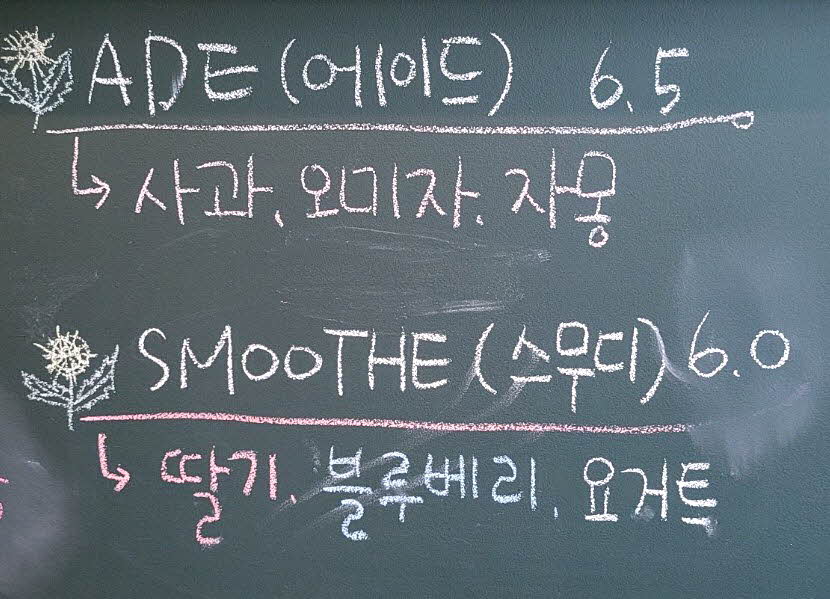 ADE (에이드) 6.5
사과, 오미자, 자몽
SMOOTHE (스무디) 6.0
딸기, 블루베리, 요거트